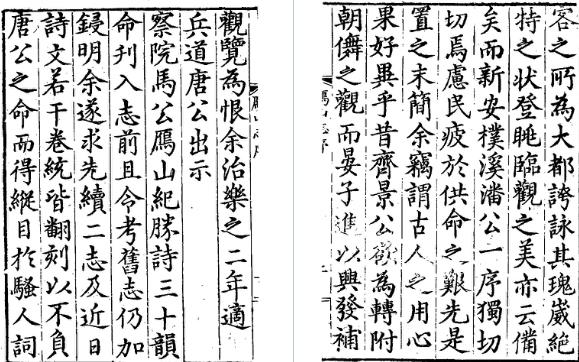 客之所為大都誇詠其瑰崴絕
特之狀登眺臨觀之美亦云備
矣而新安樸溪潘公一序獨切
切焉慮民疲於供命之艱先是
置之末簡余竊謂古人之用心
果好異乎昔齊景公欲為轉附
朝儛之觀而晏子進以興發補
觀覽為恨余治樂之二年適
兵道唐公出示
察院馬公鴈山紀勝詩三十韻
命刊入志前且令考舊志仍加
鋟明余遂求先續二志及近日
詩文若干卷統皆翻刻以不負
唐公之命而得縱目於騷人詞